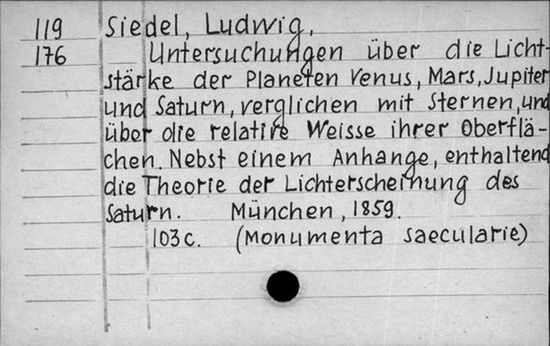 119 Siedel, Ludwig,
176 Untersuchungen über die Licht-
stärke der Planeten Venus, Mars, Jupiter
und Saturn, verglichen mit Sternen, und
über die relative Weisse ihrer Oberflä-
chen. Nebst einem Anhange, enthaltend
die Theorie der Lichterscheinung des
Saturn. München, 1859.
103 c. (Monumenta saecularie)